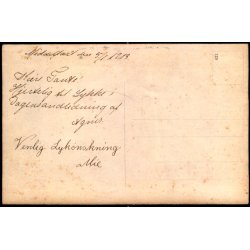 den 5/1 1919
Kære Tante!
Hjertelig til Lykke i
Dagensanledning af
Agnes.
Venlig Lykønskning
Mie